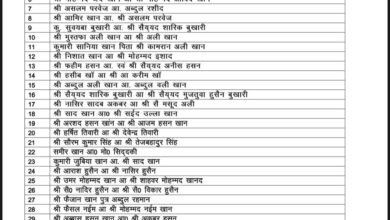 7 श्री असलम परवेज आ. अब्दुल रशीद
8 श्री आमिर खान आ. श्री असलम परवेज
9 कु. सुवयबा बुखारी आ. श्री सैय्यद शारिक बुखारी
10 श्री मुस्तफा अली खान आ श्री अली खान
11 कुमारी सानिया खान पिता श्री कामरान अली खान
12 श्री निशात खान आ श्री मोहम्मद इशाद
13 श्री फहीम हसन आ. स्वं श्री सैय्यद अनीस हसन
14 श्री हसीब खाँ आ श्री आ करीम खाँ
15 श्री अब्दुल अली खान आ. अब्दुल वली खान
16 श्री सैय्यद शारिक बुखारी आ श्री सैय्यद मुजतुवा हुसैन बुखारी
17 श्री नासिर सादब अकबर आ श्री सैं मसूद अली
18 श्री साद खान आ0 श्री सईद उल्ला खान
19 श्री अरशद हसन खांन आ श्री आजम हसन खान
20 श्री हर्षित तिवारी आ श्री देवेन्द्र तिवारी
21 श्री सौरम कुमार सिंह आ श्री तेजबहादुर सिंह
22 समीर खान आ0 मो सिद्दकी
23 कुमारी जुबिया खान आ. श्री साद खान
24 श्री आराश हुसैन आ श्री नासिर हुसैन
25 श्री उमर मोहम्मद खान आ श्री शाहवर मोहम्मद खानद
26 श्री सै0 नादिर हुसैन आ श्री सै0 विकार हुसैन
27 श्री फैजान खान पुत्र अब्दुल रहमान
28 श्री फैसल नईम आ श्री मोहम्मद नईम
29 श्री अब्बास हसन खान आ श्री अकबर हसन